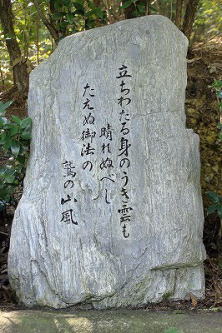 立ちわたる身のうき雲も
晴れぬべし
たえぬ御法の
鷲の山風